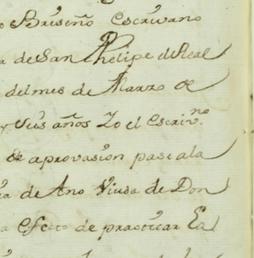 o Briseño Escrivano
a de San Phelipe el Real
del mes de Marzo de
y seis años Yo el Escriv.no
de aprovasion pase ala
de Ano Viuda de Don
a efecto de practicar La